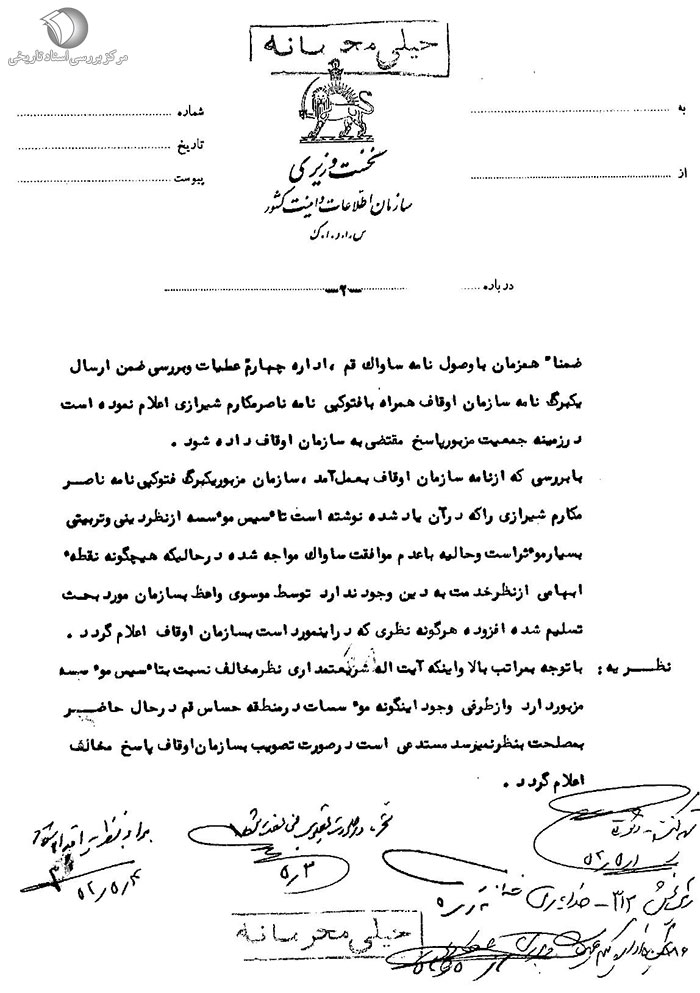 مرکز بررسی اسناد تاریخی
خیلی محرمانه
به
شماره
تاریخ
از
پیوست
نخست وزیری
سازمان اطلاعات و امنیت کشور
س.ا.و.ا.ک
درباره ۲
ضمناً همزمان با وصول نامه ساواک قم ، اداره چهارم عملیات وبررسی ضمن ارسال
یکبرگ نامه سازمان اوقاف همراه با فتوکپی نامه ناصرمکارم شیرازی اعلام نموده است
در زمینه جمعیت مزبور پاسخ مقتضی به سازمان اوقاف داده شود .
با بررسی که ازنامه سازمان اوقاف بعمل‌آمد ، سازمان مزبوریکبرگ فتوکپی نامه ناصر
مکارم شیرازی راکه درآن یاد شده نوشته است تاٴسیس موٴسسه ازنظردینی وتربیتی
بسیارموٴثراست وحالیه باعدم موافقت ساواک مواجه شده درحالیکه هیچگونه نقطهٴ
ابهامی ازنظرخدمت به دین وجود ندارد توسط موسوی واعظ بسازمان مورد بحث
تسلیم شده افزوده هرگونه نظری که دراینمورد است بسازمان اوقاف اعلام گردد .
نظریه : باتوجه بمراتب بالا واینکه آیت اله شریعتمداری نظرمخالف نسبت بتاٴسیس موٴسسه
مزبوردارد وازطرفی وجود اینگونه موٴسسات درمنطقه حساس قم درحال حاضر
بمصلحت بنظرنمیرسد مستدعی است درصورت تصویب بسازمان اوقاف پاسخ مخالف
اعلام گردد .
۵/۳
۵۲/۵/۴
خیلی محرمانه